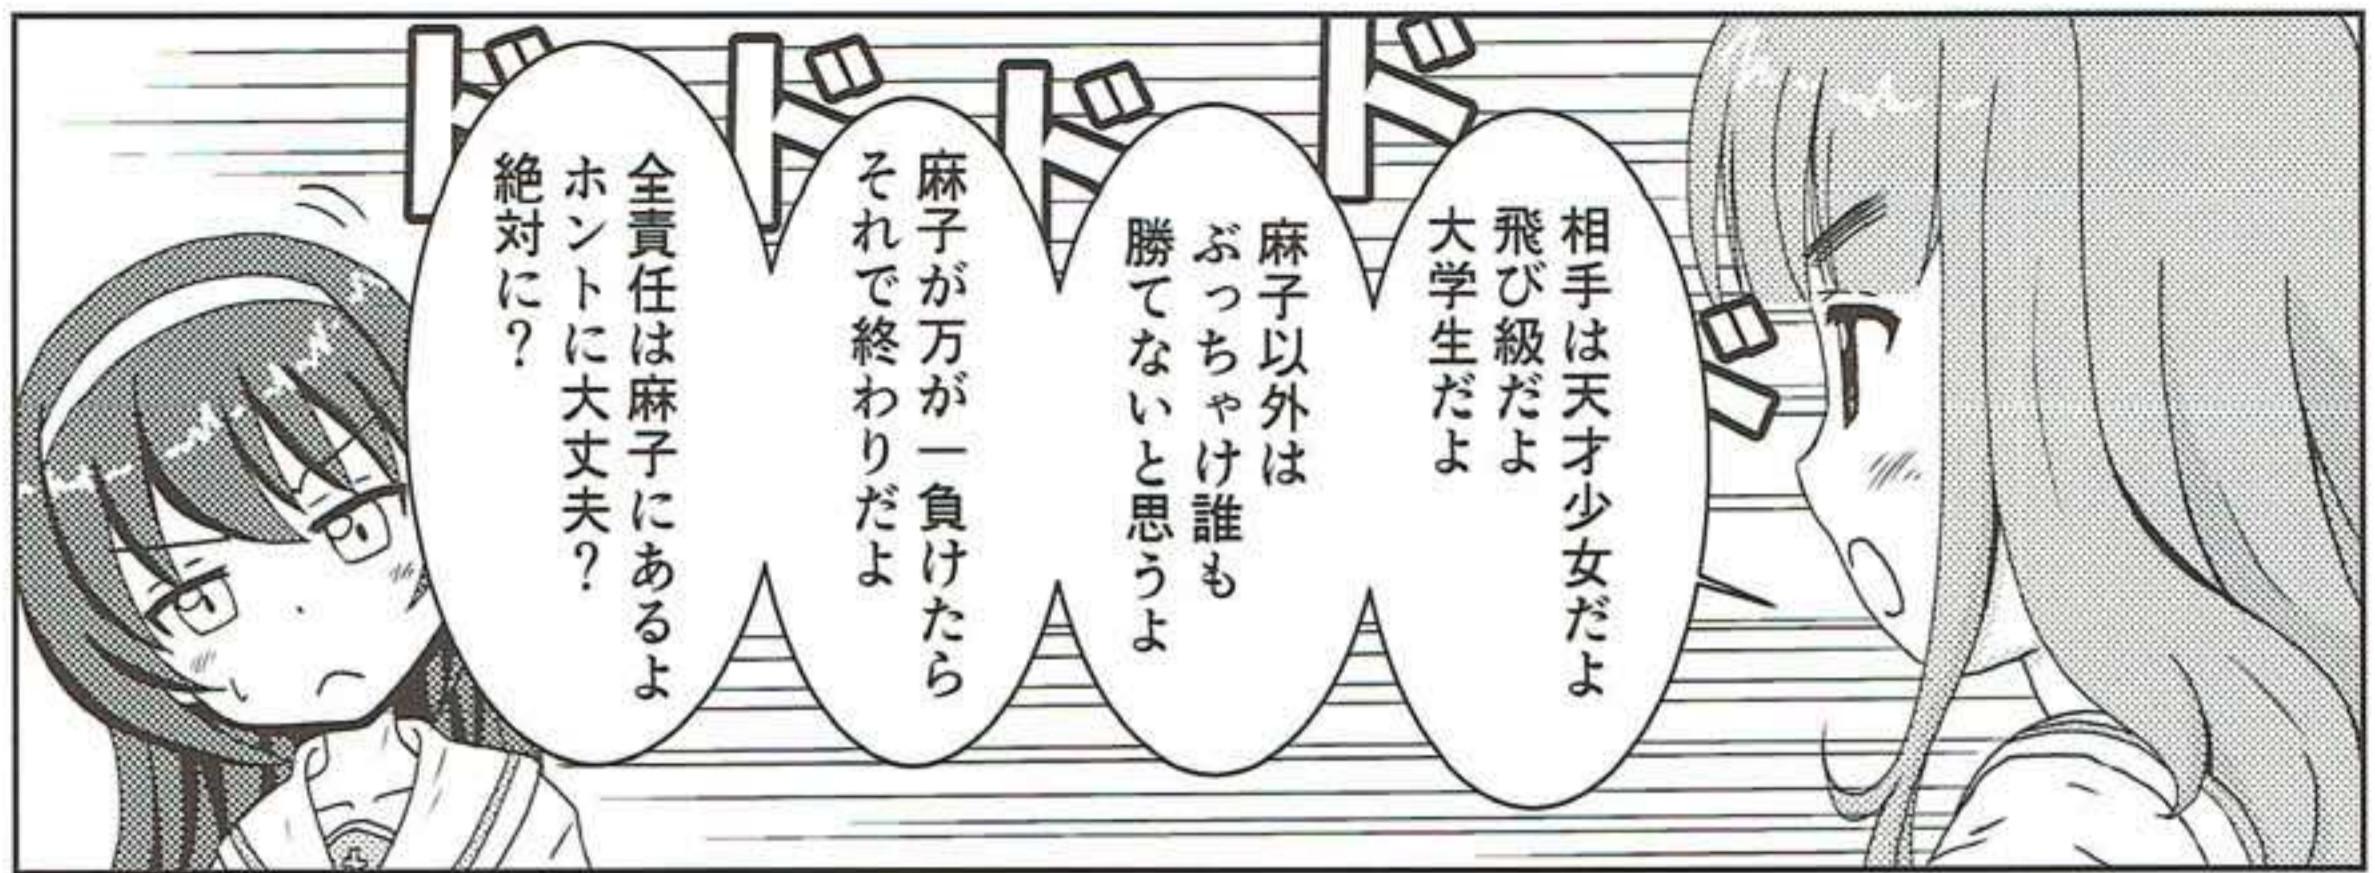 相手は天才少女だよ
飛び級だよ
大学生だよ
麻子以外は
ぶっちゃけ誰も
勝てないと思うよ
麻子が万が一負けたら
それで終わりだよ
全責任は麻子にあるよ
ホントに大丈夫？
絶対に？
ド
ド
ド
ド